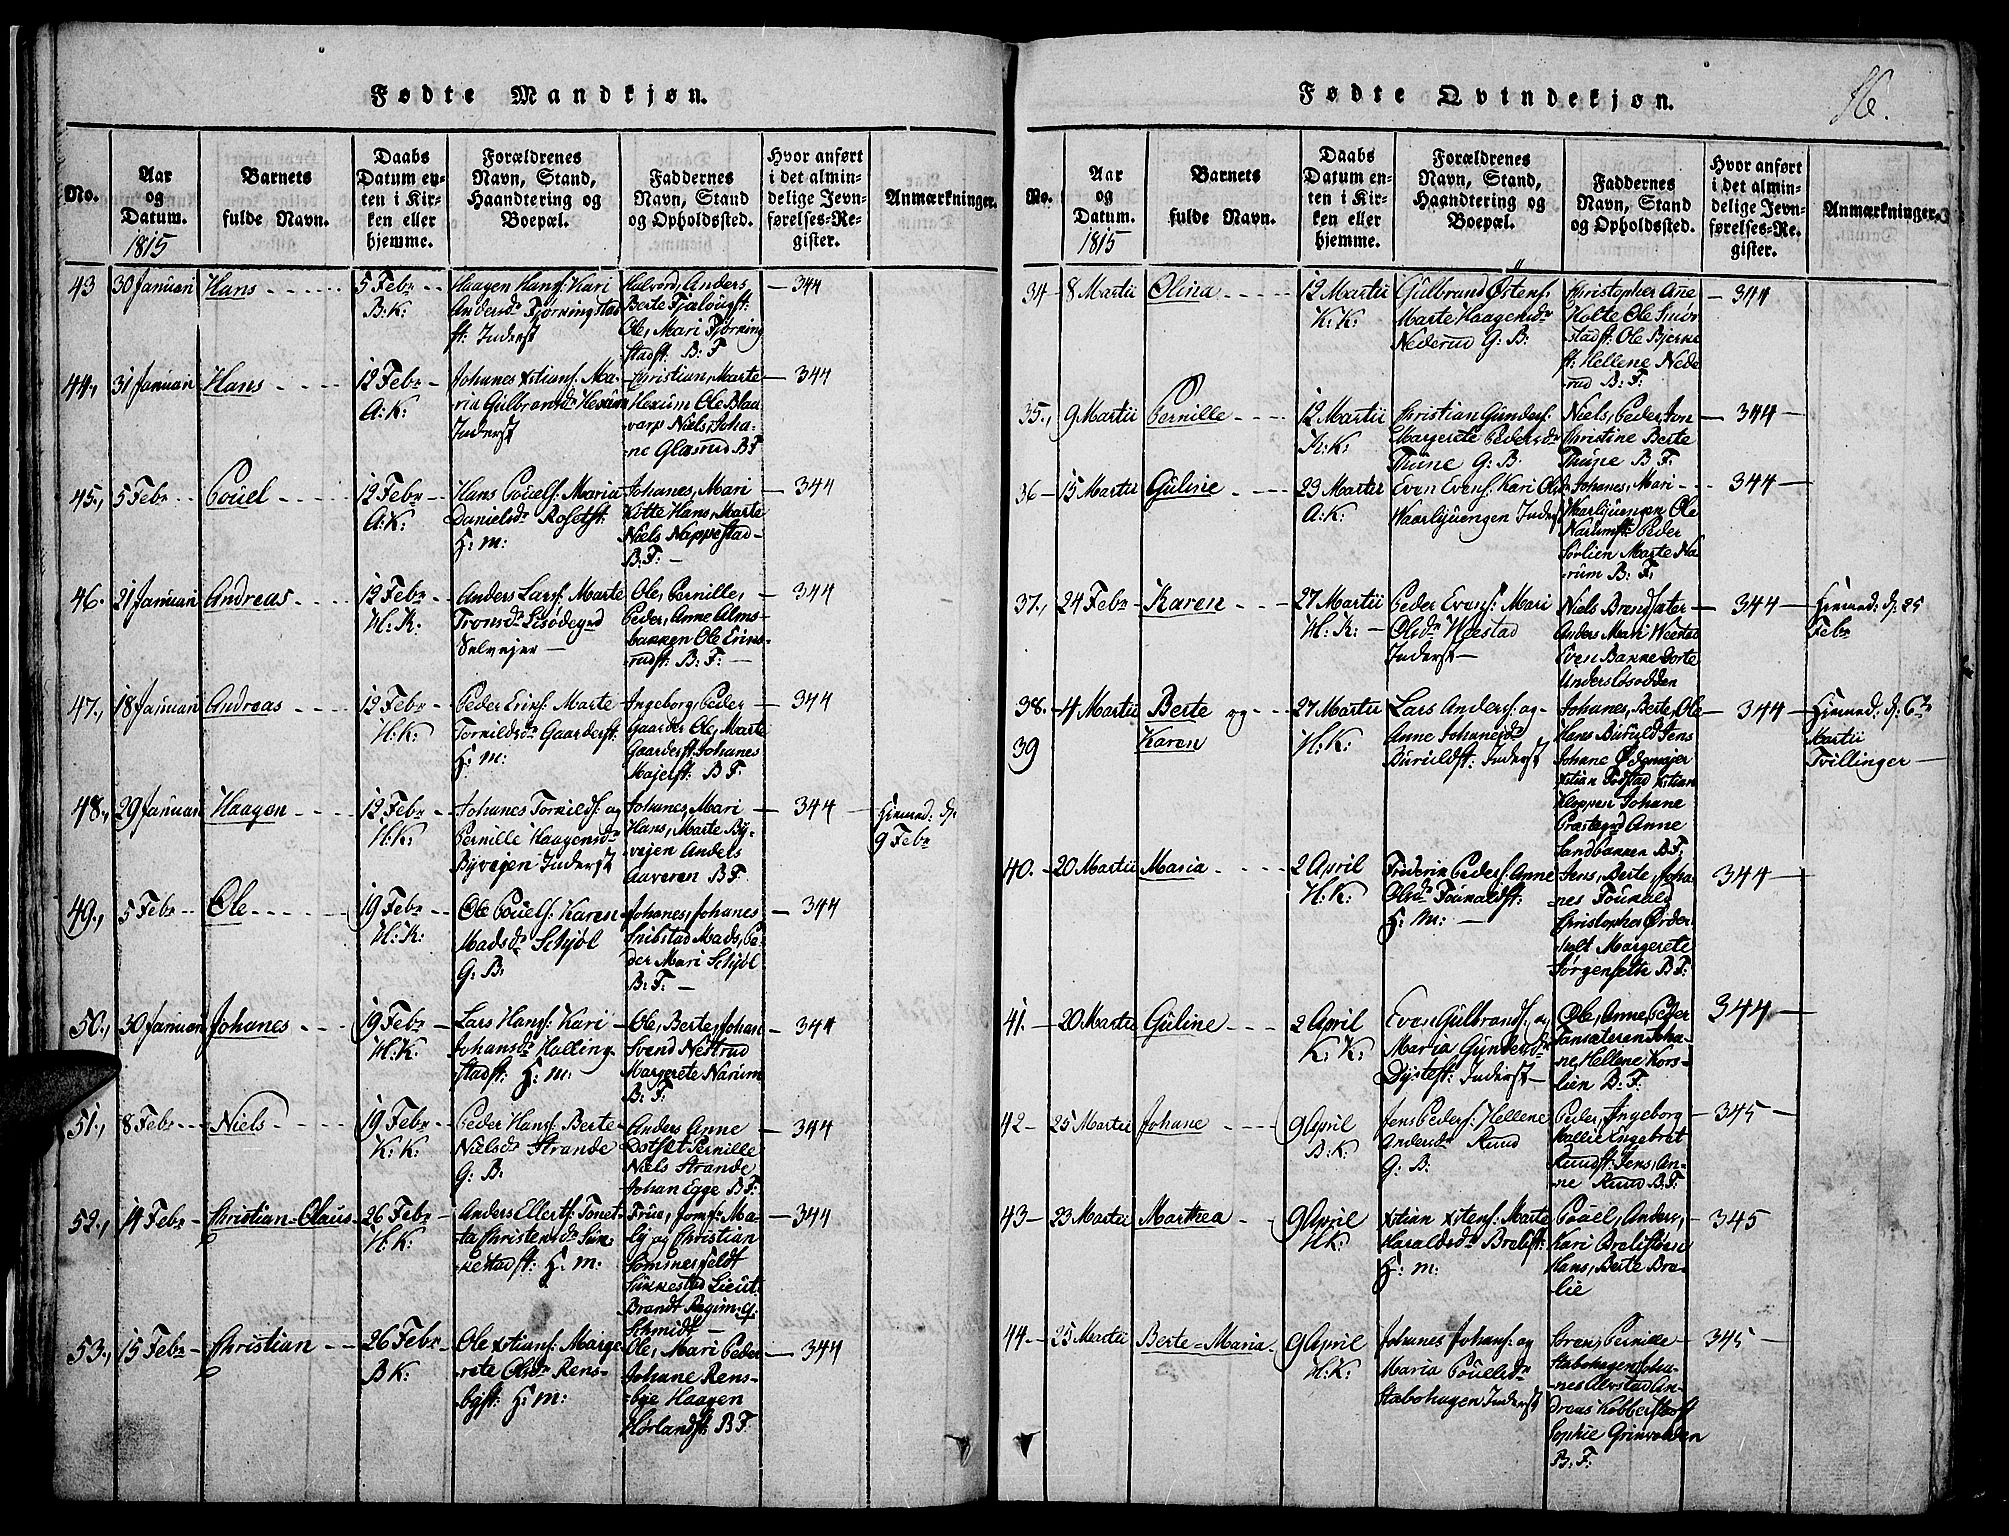 Fødte Mandkjøn.
No.
Aar
og
Datum.
1815
Barnets
fulde Navn.
Daabs
Datum en-
ten i Kir-
ken eller
hjemme.
Forældrenes
Navn, Stand,
Haandtering og
Boepæl.
Faddernes
Navn, Stand
og Opholdssted.
Hvor anført
i det almin-
delige Jevn-
førelses-Re-
gister.
Anmærkninger.
43 30 Januari Hans 5 Febr
B: K:
Haagen Hansf: Kari
Andersdr
ft. Inderst
Halvord, Anders
Berte
Ole, Mari
stadft: B: F
344
44., 31 Januari Hans 12 Febr
A: K:
Johanes Xstiansf: Ma-
ria Gulbransdr Hexum
Inderst
Christian, Marte
Hexum Ole Blaa
varp Niels, Joha-
ne Glæsrud B: F
344
45., 5 Febr Pouel 12 Febr
A: K:
Hans Pouelsf: Maria
Danielsdr Rosetft:
H: m:
Johanes, Mari
Kotte Hans, Marte
Niels Nappestad
B: F:
344
46. 21 Januari Andreas 12 Febr
H: K:
Anders Larsf: Marte
Tronsdr
Selvejer
Ole, Pernille,
Peder, Anne Alms-
bakken Ole Erins-
rudft: B: F:
344
47., 18 Januari Andreas 12 Febr
H: K:
Peder Erinsf: Marte
Torkildsdr Gaarderft:
H: m:
Ingeborg, Peder
Gaarder Ole, Marte
Gaarderft Johanes
Majerft: B: F:
344
48., 29 Januari Haagen 12 Febr
H: K:
Johanes Torkildsf: og
Pernille Haagensdr
Byvejen Inderst
Johanes, Mari
Hans, Marte By-
vejen Anders
Aaveren B: F:
344
Hiemed: d:
9 Febr
49., 5 Febr Ole 19 Febr
H: K:
Ole Pouelsf: Karen
Madsdr Schjøl
G: B:
Johanes, Johanes
Snibstad Mads, Pe-
der Mari Schjøl
B: F:
344
50., 30 Januari Johanes 19 Febr
H: K:
Lars Hansf: Kari
Johansdr Halling
stadft: H: m:
Ole, Berte, Johan
Svend Nestrud
Margerete Narum
B: F:
344
51., 8 Febr Niels 19 Febr
K: K:
Peder Hansf: Berte
Nielsdr Strande
G: B:
Anders Anne
Dotset Pernille
Niels Strande
Johan Egge B: F:
344
52., 14 Febr Christian=Olaus 26 Febr
H: K:
Anders Ellertf: Tonet-
ta Christensdr Suk-
kestadft: H: m:
Frue, Jomfr Ma-
ly og Christian
Sommerfeldt
Sukkestad Lieut:
Brandt Regim: q:
Schmidt
344
53., 15 Febr Christian 26 Febr
B: K:
Ole Xstiansf: Marge
rete Olsdr Rens-
byft: H: m:
Ole, Mari Peder
Johane Rens-
bye Haagen
Hørlandft: B: F:
344
Fødte Qvindekjøn.
16.
No.
Aar
og
Datum.
1815
Barnets
fulde Navn.
Daabs
Datum en-
ten i Kir-
ken eller
hjemme.
Forældrenes
Navn, Stand,
Haandtering og
Boepæl.
Faddernes
Navn, Stand
og Opholdssted.
Hvor anført
i det almin-
delige Jevn-
førelses-Re-
gister.
Anmærkninger.
34 8 Martii Olina 12 Martii
K: K:
Gulbrand Østensf:
Marte Haagensdr
Nederud G: B:
Christopher Ane
Holte Ole Smer
stadft: Ole Bjerke
ft: Hellene Nede
rud B: F:
344
35., 9 Martii Pernille 12 Martii
K: K:
Christian Gundersf:
Margerete Pedersdr
Thune G: B.
Niels, Peder, Jon
Christine Berte
Thune B: F:
344
36 15 Martii Guline 23 Martii
A: K:
Even Evensf: Kari Olsdr
Waarljuengen Inderst
Johanes, Mari
Waarljuengen Ole
Narumft: Peder
Sørlien Marte Na
rum B: F:
344
37., 24 Febr Karen 27 Martii
H: K:
Peder Evensf: Mari
Olsdr Weestad
Inderst
Niels Brendsæter
Anders Mari Weestad
Even Bakke Dorte
Underslosodden
344
Hiemed: d: 25
Febr
38. 4 Martii Berte og 27 Martii
39 Karen H: K:
Lars Andersf: og
Anne Johanesdr
Buruldft: Inderst
Johanes, Berte, Ole
Hans Buruld Jens
Johane Ødemajer
Xstian Fodstad Xstian
Kloppen Johane
Præstegrd Anne
Sandbakken B: F:
344
Hiemed: d: 6te
Martii
Tvillinger
40. 20 Martii Maria 2 April
H: K:
Friderik Pedersf: Anne
Olsdr Founaldft:
H: m:
Jens, Berte, Joha-
nes Founald
Christopher Order
Margerete
Jørgensette B: F:
344
41. 20 Martii Guline 2 April
K: K:
Even Gulbrandsf: og
Maria Gundersdr
Dysteft: Inderst
Ole, Anne Peder
Joha-
ne Hellene Kors-
lien B: F:
344
42 25 Martii Johane 9 April
B: K:
Jens Pedersf: Hellene
Andersdr Ruud
G: B:
Peder, Ingeborg
Kallie Engebret
Ruudft: Jens, An-
ne Ruud B: F:
345
43 23 Martii Marthea 9 April
H: K:
Xstian Xstensf: Marte
Haraldsdr Brelieft:
H: m:
Pouel, Anders,
Kari
Hans, Berte Bre-
lie
345
44 25 Martii Berte=Maria 9 April
H: K:
Johanes Johansf: og
Maria Pouelsdr
Stabohagen Inderst
Pernille
Stabohagen Joha-
nes Alvstad An-
dreas Kobberstadft
Sophie Grinvolden
B: F:
345